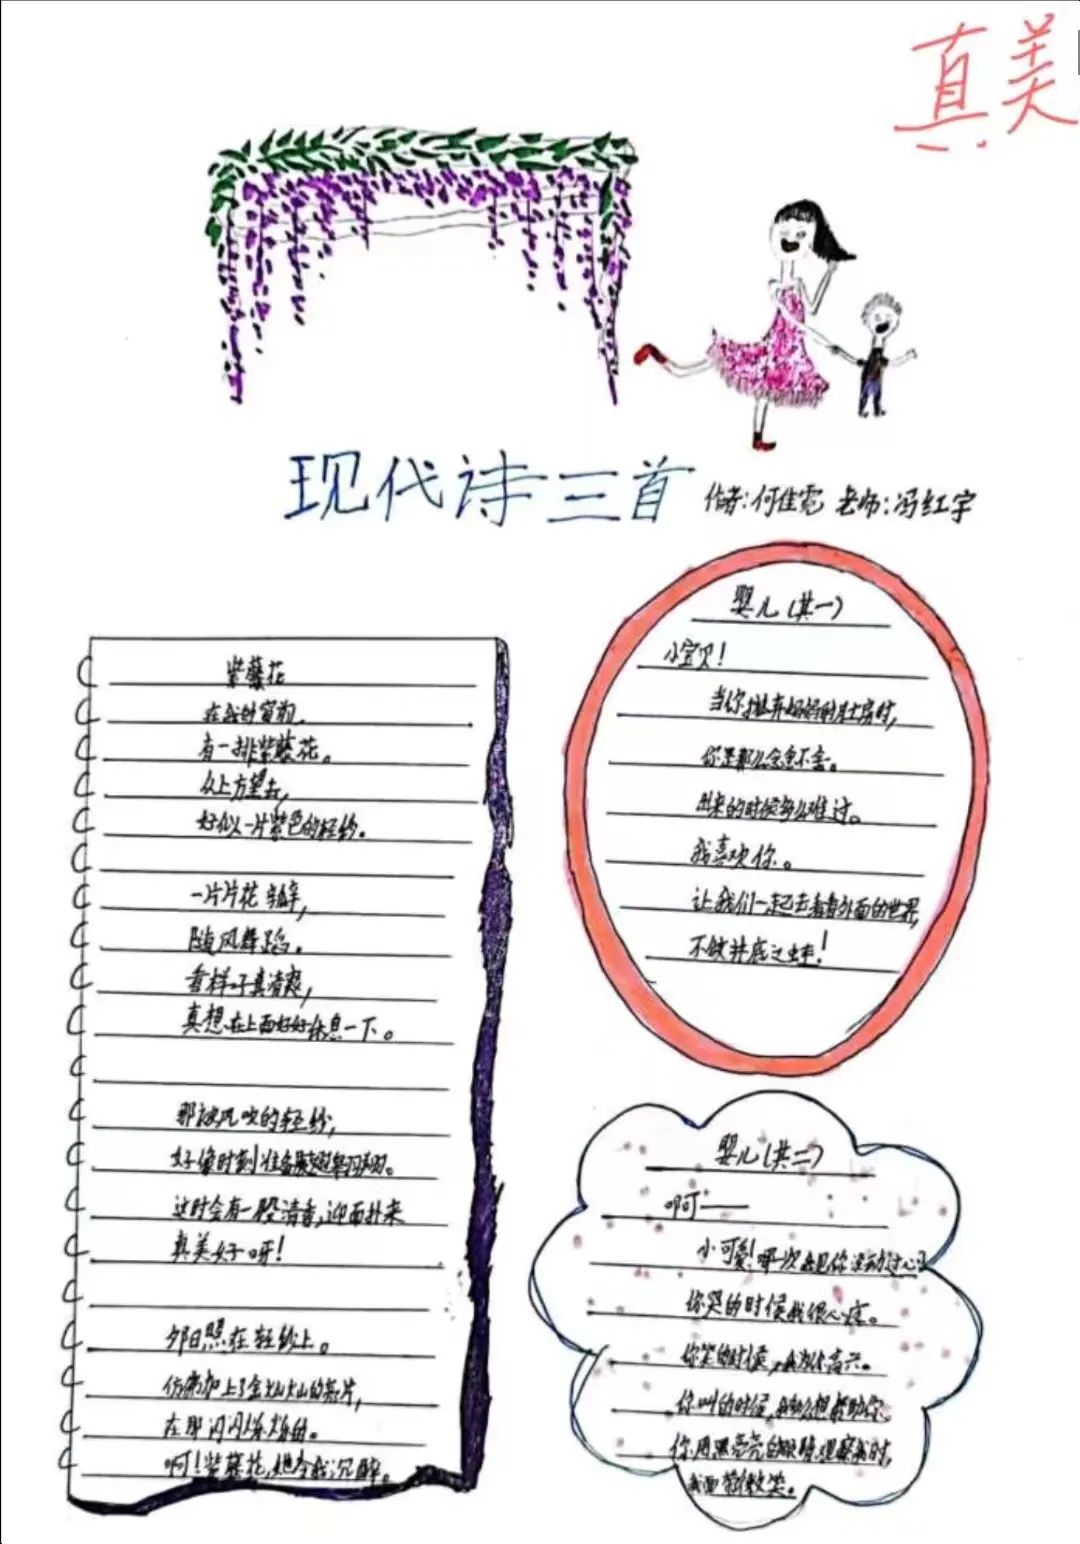 真美
现代诗三首 作者:何佳霓 老师:冯红宇
紫藤花
在我的窗前,
有一排紫藤花。
从上方望去,
好似一片紫色的轻纱。
一片片花瓣,
随风舞蹈。
看样子真清爽,
真想在上面好好休息一下。
那被风吹的轻纱,
好像时刻准备展翅翱翔。
这时会有一股清香,迎面扑来
真美好呀!
夕日照在轻纱上。
仿佛加上了金灿灿的亮片,
在那闪闪烁烁的。
啊!紫藤花,她令我沉醉。
婴儿(其一)
小宝贝!
当你抛弃妈妈的时,
你是那么念念不舍。
出来的时候多么难过。
我喜欢你。
让我们一起去看看外面的世界,
不做井底之蛙!
婴儿(其二)
啊——
小可爱!哪一次在见你没动过心
你哭的时候我很心疼。
你笑的时候,高兴。
你叫的时候,我多么想帮助你。
你用黑亮亮的眼睛观察我时,
我面带微笑。